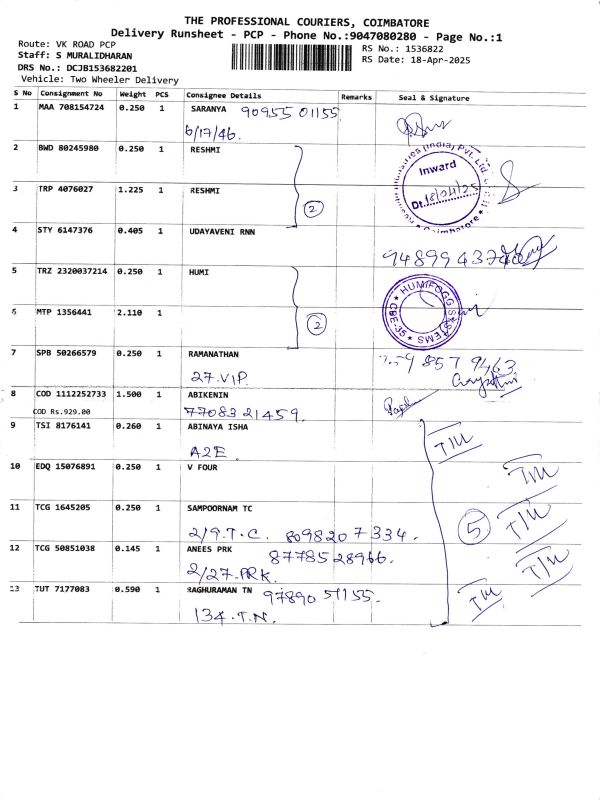 THE PROFESSIONAL COURIERS, COIMBATORE
Delivery Runsheet - PCP - Phone No.:9047080280 - Page No.:1
Route: VK ROAD PCP
RS No.: 1536822
Staff: S MURALIDHARAN
RS Date: 18-Apr-2025
DRS No.: DCJB153682201
Vehicle: Two Wheeler Delivery
S No Consignment No Weight PCS Consignee Details Remarks Seal & Signature
1 MAA 708154724 0.250 1 SARANYA 90955 01155
6/17/46.
2 BWD 80245980 0.250 1 RESHMI
Inward
3 TRP 4076027 1.225 1 RESHMI
Dt. 18/04/25
2
Coimbatore
4 STY 6147376 0.405 1 UDAYAVENI RNN
5 TRZ 2320037214 0.250 1 HUMI
HUMIFOGG SYSTEMS
CBE-35
6 MTP 1356441 2.110 1
2
7 SPB 50266579 0.250 1 RAMANATHAN
27.VIP
8 COD 1112252733 1.500 1 ABIKENIN
COD Rs.929.00 77083 21459.
9 TSI 8176141 0.260 1 ABINAYA ISHA
A2E.
T/M
10 EDQ 15076891 0.250 1 V FOUR
T/M
11 TCG 1645205 0.250 1 SAMPOORNAM TC
5 T/M
2/9.T.C. 809820 7334.
12 TCG 50851038 0.145 1 ANEES PRK 87785 28966.
2/27.PRK. T/M
13 TUT 7177083 0.590 1 RAGHURAMAN TN 97890 51155.
T/M
134.T.N.